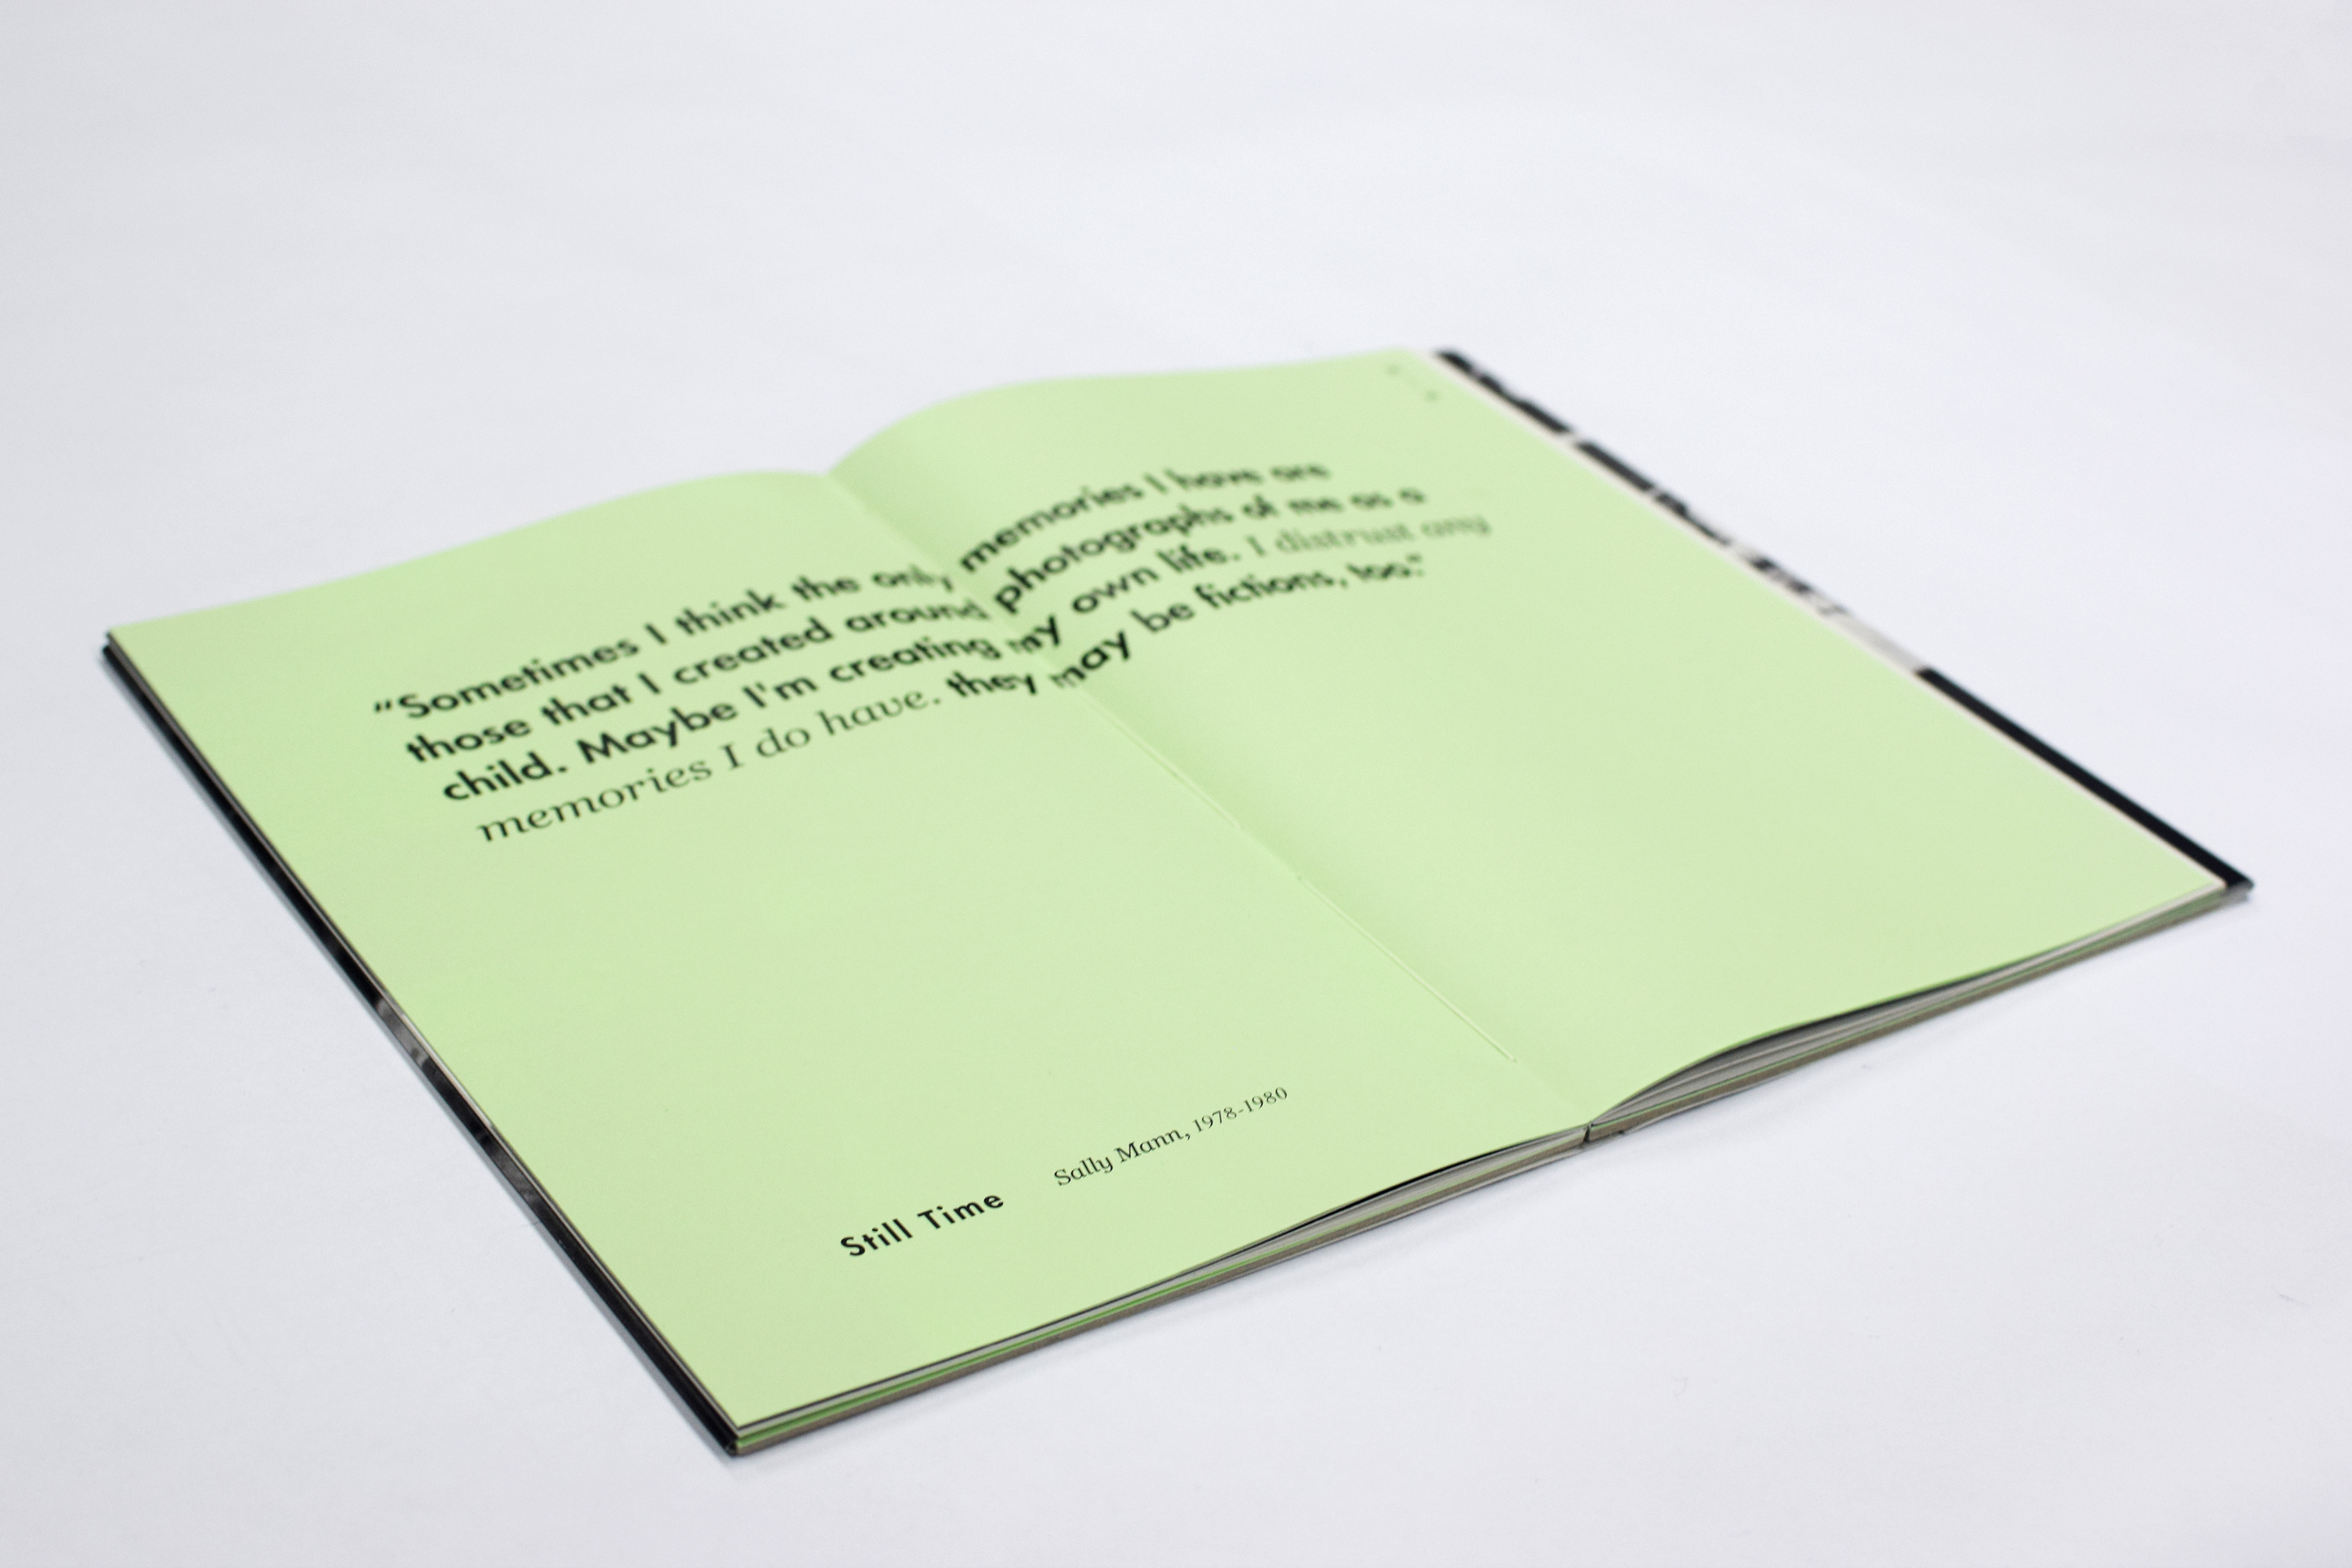 “Sometimes I think the only memories I have are
those that I created around photographs of me as a
child. Maybe I'm creating my own life. I distrust any
memories I do have. they may be fictions, too.”
Still Time Sally Mann, 1978-1980